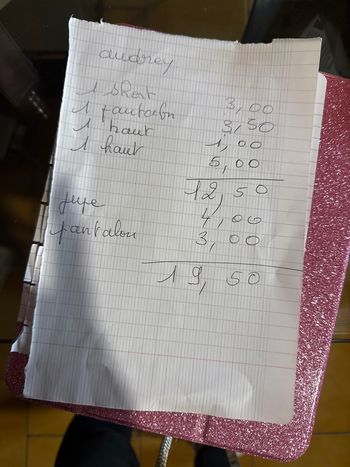 audrey
1 short 3,00
1 pantalon 3,50
1 haut 1,00
1 haut 5,00
12,50
jupe 4,00
pantalon 3,00
19,50